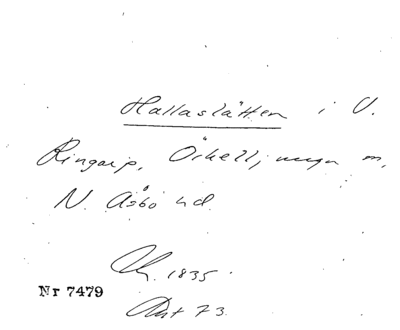 Hallaslätten i V.
Ringarp, Örkelljunga sn,
N. Åsbo hd.
1835.
Nr 7479
Akt 73.